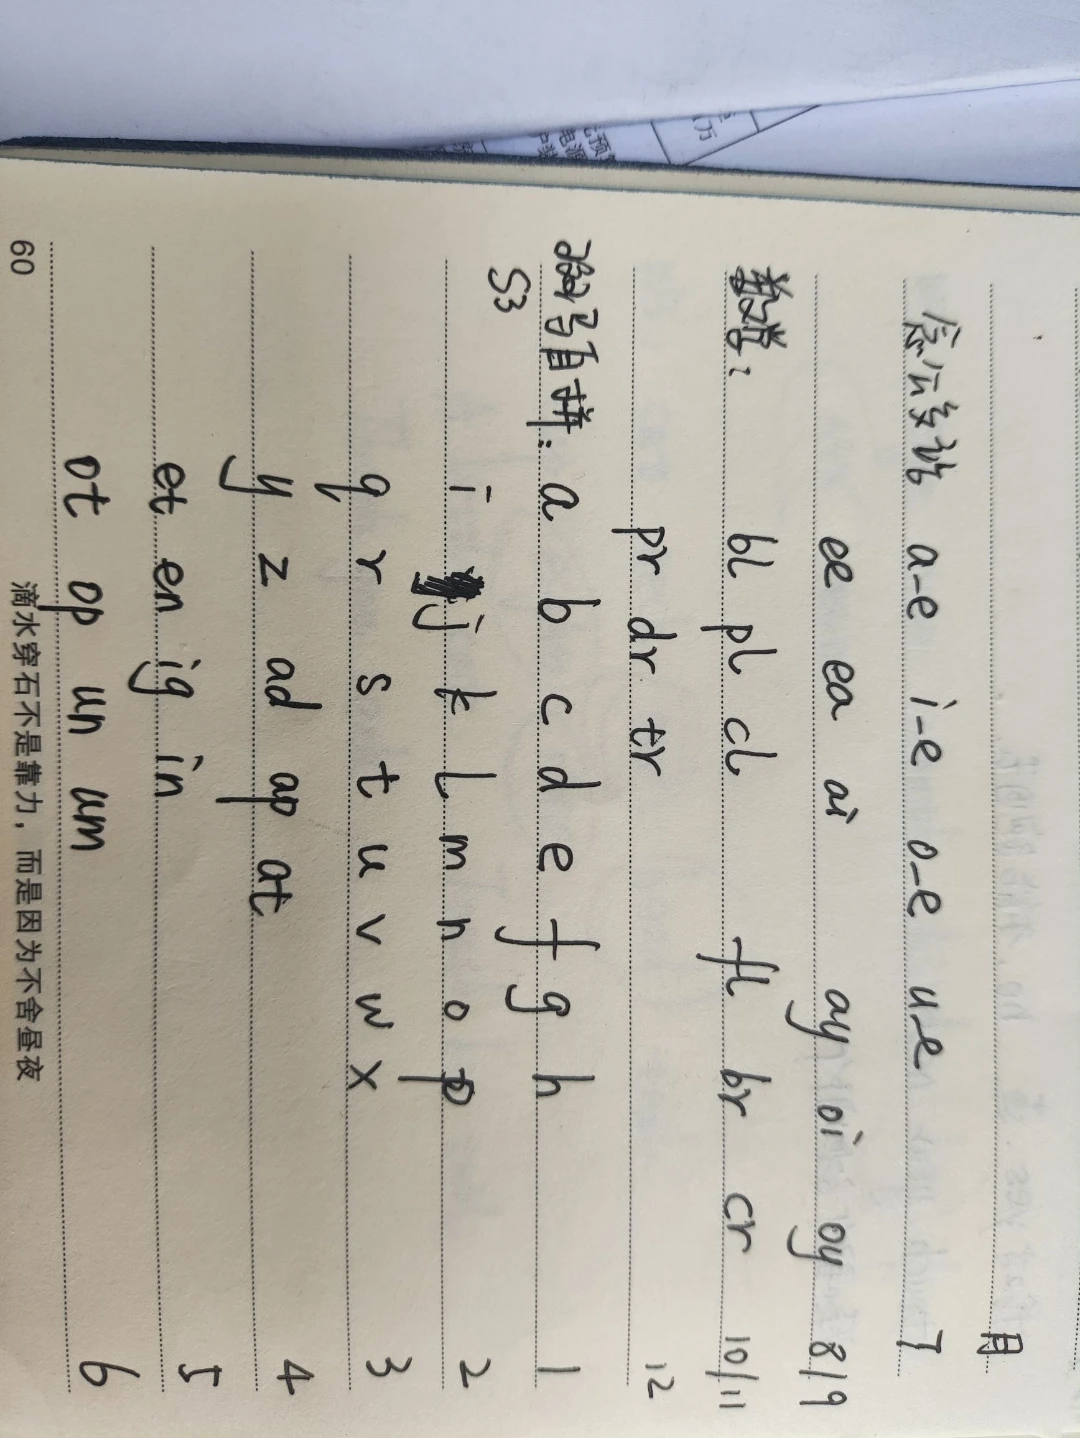 月
a-e i-e o-e u-e 7
ee ea ai ay oi oy 8/9
bl pl cl fl br cr 10/11
pr dr tr 12
自拼: a b c d e f g h 1
S3 i j k l m n o p 2
q r s t u v w x 3
y z ad ap at 4
et en ig in 5
ot op un um 6
60 滴水穿石不是靠力，而是因为不舍昼夜